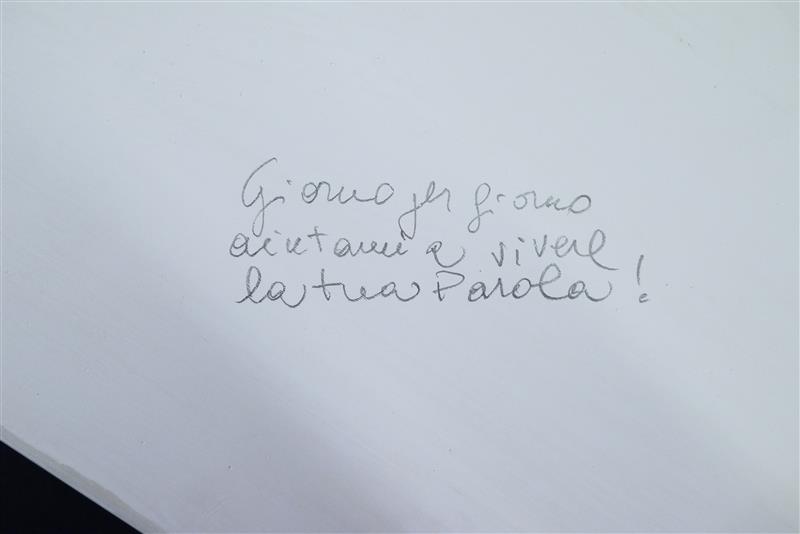 Giorno per giorno
aiutami a vivere
la tua Parola!